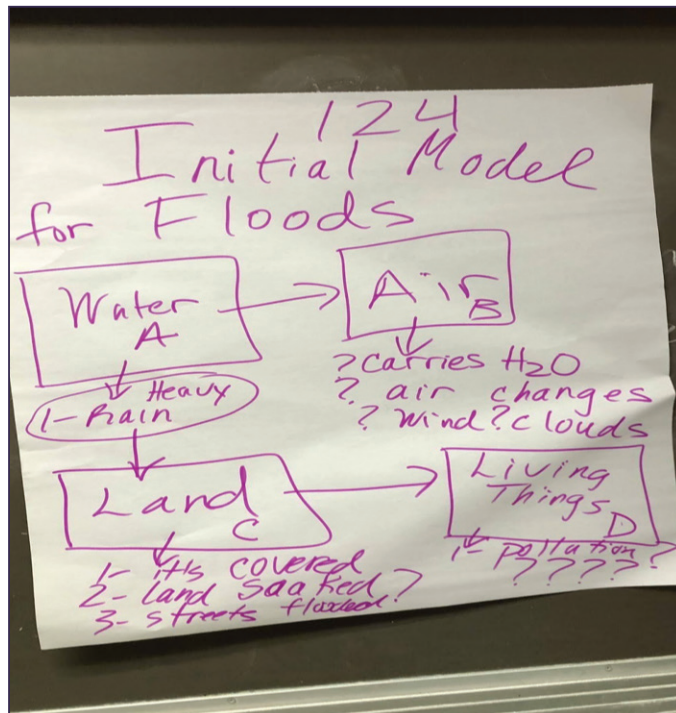 124
Initial Model
for Floods
Water
A
Air
B
? carries H2O
? air changes
? wind ? clouds
Heavy
1- Rain
Land
C
Living
Things
D
1- it's covered
2- land soaked ?
3- streets flooded
1- pollution ?
? ? ? ?